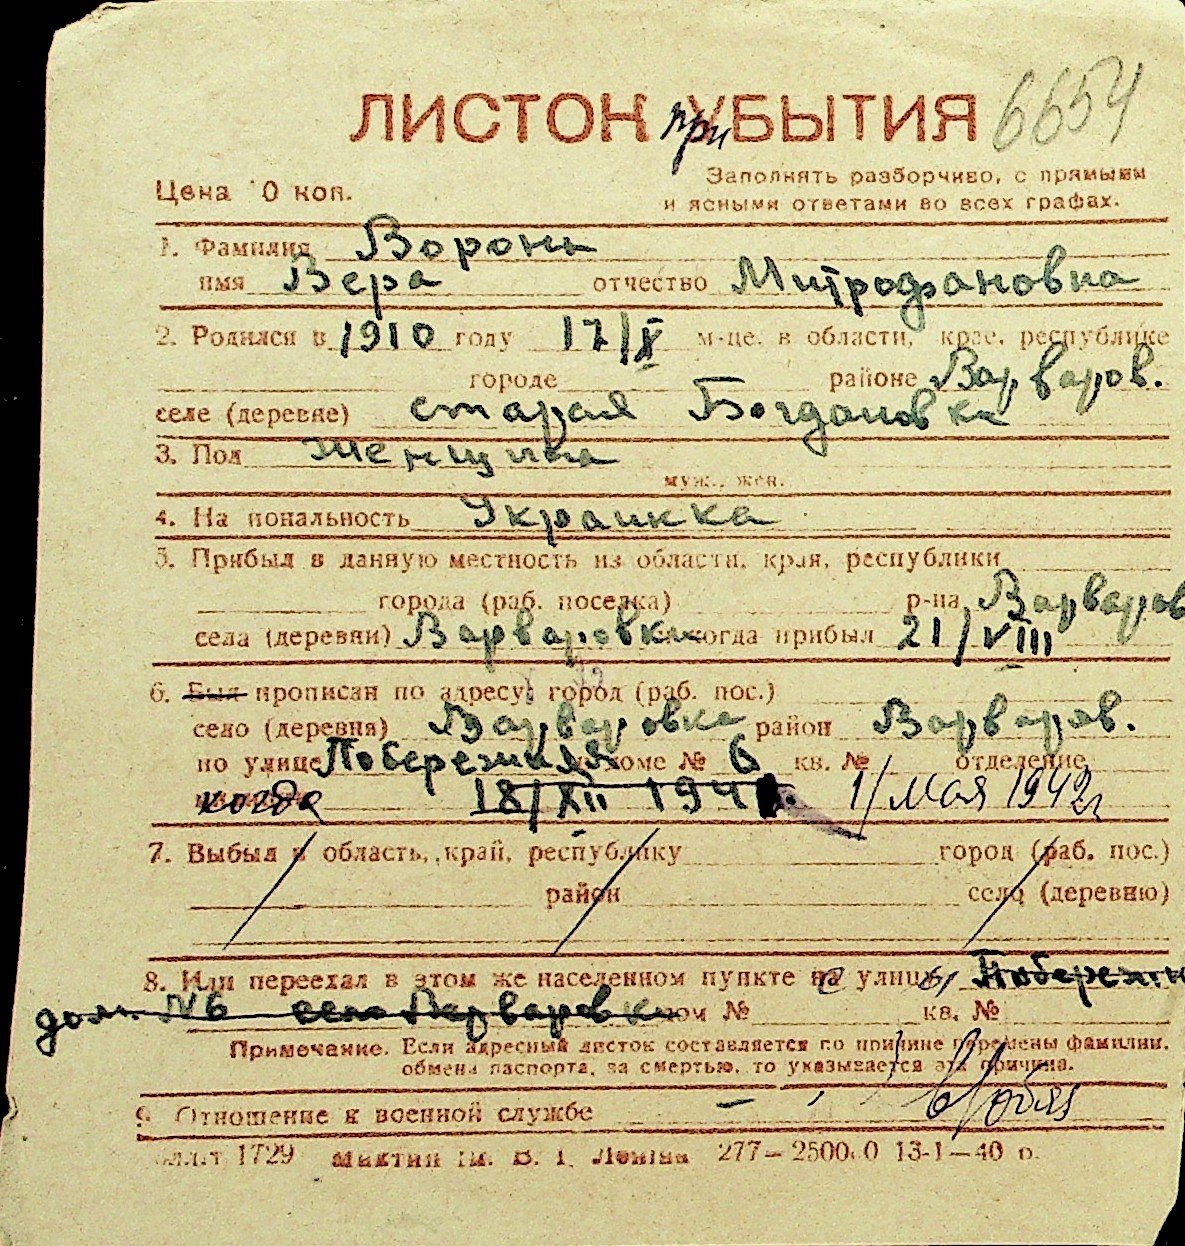 ЛИСТОК при УБЫТИЯ 6654
Цена 10 коп. Заполнять разборчиво, с прямыми
и ясными ответами во всех графах.
1. ФамилияВорона
имя Вера отчество Митрофановна
2. Родился в 1910 году 17/X м-це. в области, крае, республике
городе районе Варваров.
селе (деревне) старая Богдановка
3. Пол женщина
муж., жен.
4. Национальность Украинка
5. Прибыл в данную местность из области, края, республики
города (раб. поселка) р-на Варваров
села (деревни) Варваровка когда прибыл 21/VIII
6. Был прописан по адресу: город (раб. пос.)
село (деревня) Варваровка район Варваров.
по улице Побережная доме № 6 кв. № отделение
когда 18/XII 194 . 1/мая 1942г
7. Выбыл в область, край, республику город (раб. пос.)
район село (деревню)
8. Или переехал в этом же населенном пункте на улицу Побережн
дом. №6 село Варваровка дом № кв. №
Примечание. Если адресный листок составляется по причине перемены фамилии,
обмена паспорта, за смертью, то указывается эта причина.
9. Отношение к военной службе —
1729 277—25000 13-I—40 р.